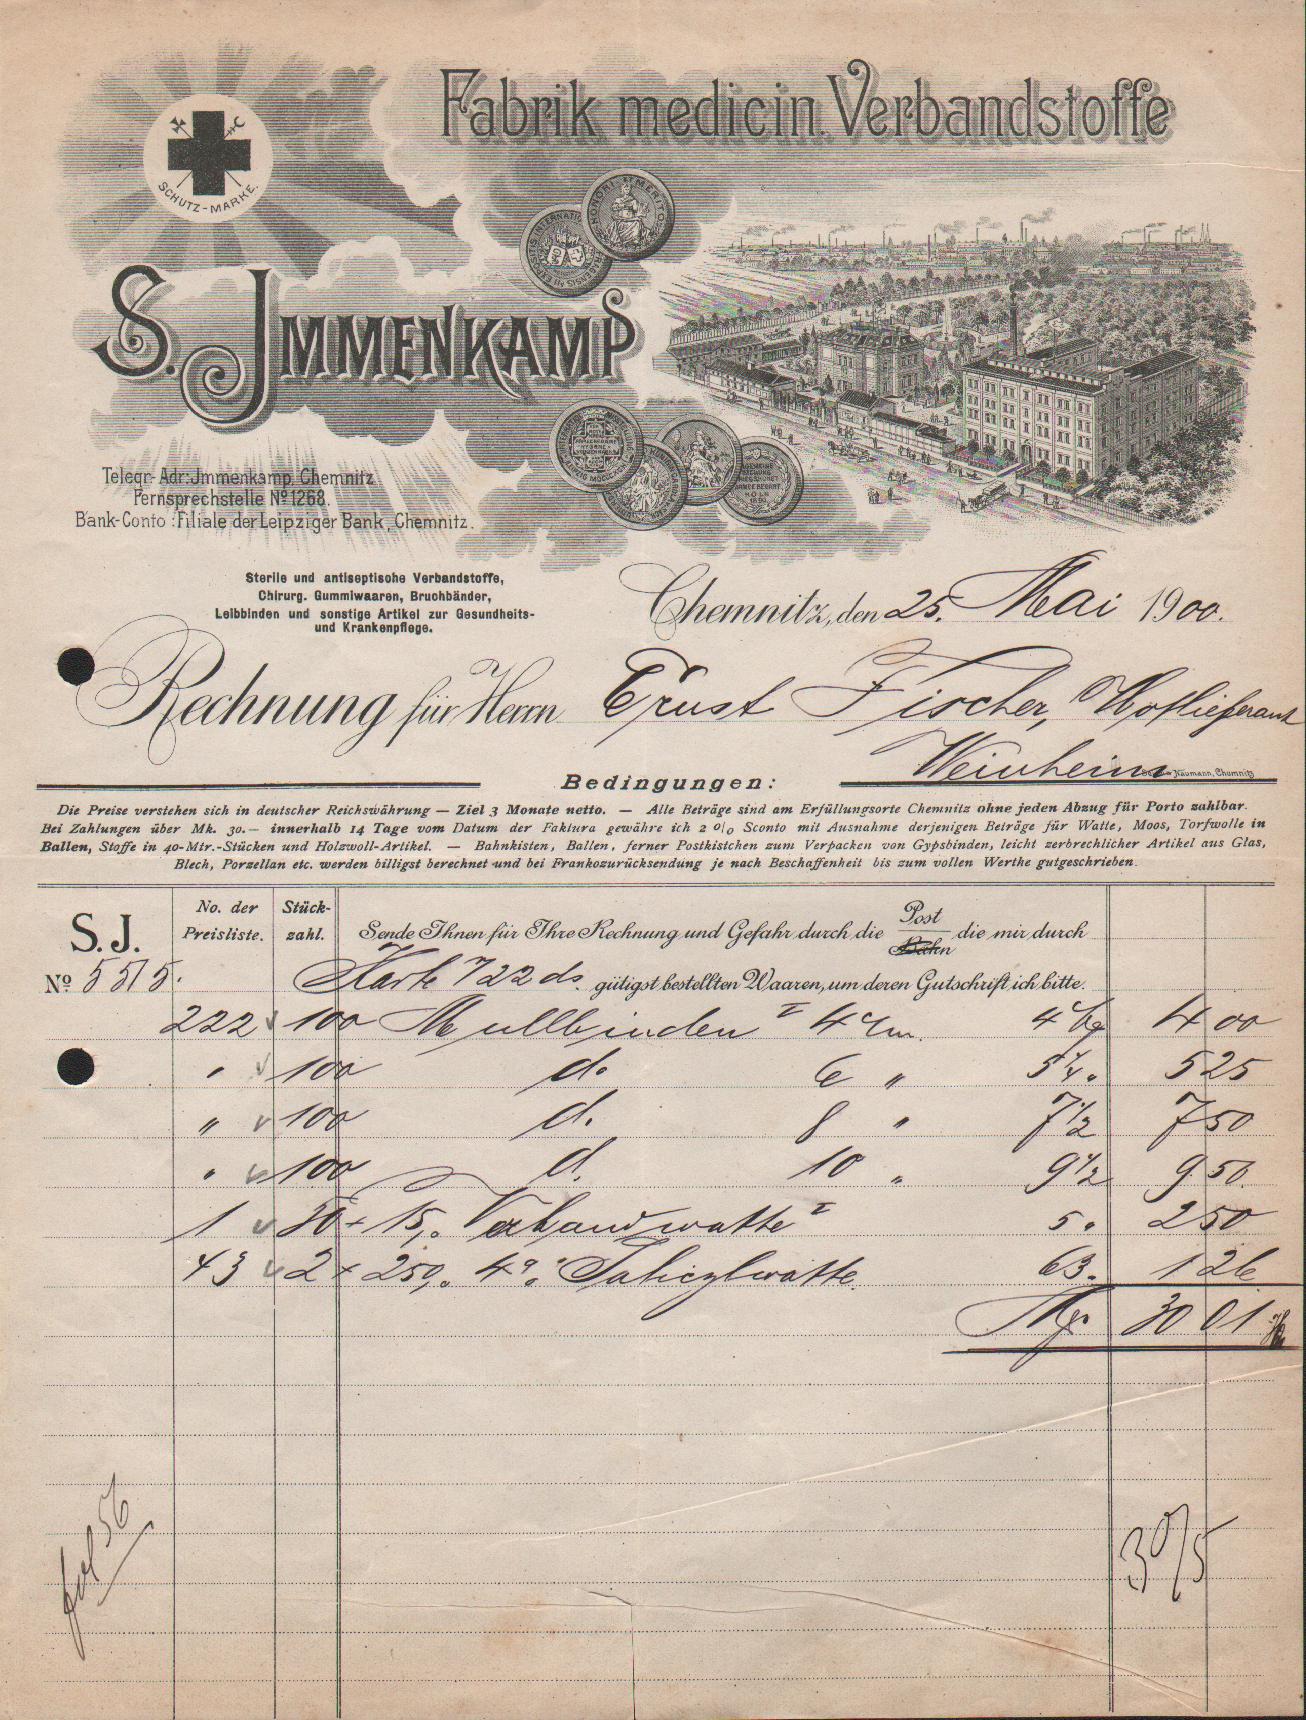 Fabrik medicin. Verbandstoffe
SCHUTZ-MARKE.
HONORI MERITO
S. JMMENKAMP
Telegr-Adr: Jmmenkamp, Chemnitz
Fernsprechstelle No 1268.
Bank-Conto: Filiale der Leipziger Bank, Chemnitz.
Sterile und antiseptische Verbandstoffe,
Chirurg. Gummiwaaren, Bruchbänder,
Leibbinden und sonstige Artikel zur Gesundheits-
und Krankenpflege.
Chemnitz, den 25. Mai 1900.
Rechnung für Herrn Ernst Fischer, Hoflieferant
Weinheim
Naumann, Chemnitz
Bedingungen:
Die Preise verstehen sich in deutscher Reichswährung — Ziel 3 Monate netto. — Alle Beträge sind am Erfüllungsorte Chemnitz ohne jeden Abzug für Porto zahlbar.
Bei Zahlungen über Mk. 30.— innerhalb 14 Tage vom Datum der Faktura gewähre ich 2 0/0 Sconto mit Ausnahme derjenigen Beträge für Watte, Moos, Torfwolle in
Ballen, Stoffe in 40-Mtr.-Stücken und Holzwoll-Artikel. — Bahnkisten, Ballen, ferner Postkistchen zum Verpacken von Gypsbinden, leicht zerbrechlicher Artikel aus Glas,
Blech, Porzellan etc. werden billigst berechnet und bei Frankozurücksendung je nach Beschaffenheit bis zum vollen Werthe gutgeschrieben.
S. J. No. der Preisliste. Stück-zahl. Sende Ihnen für Ihre Rechnung und Gefahr durch die Post Bahn die mir durch
No 5515. Karte 722 ds. gütigst bestellten Waaren, um deren Gutschrift ich bitte.
222 100 Mullbinden I 4 cm. 4 4 00
" 100 d. 6 " 5 1/4 " 5 25
" 100 d. 8 " 7 1/2 7 50
" 100 d. 10 " 9 1/2 9 50
1 30 × 15, Verbandwatte I 5 " 2 50
43 2 × 250, 4% Salicylwatte 63 " 1 26
30 01
fol 56
30/5